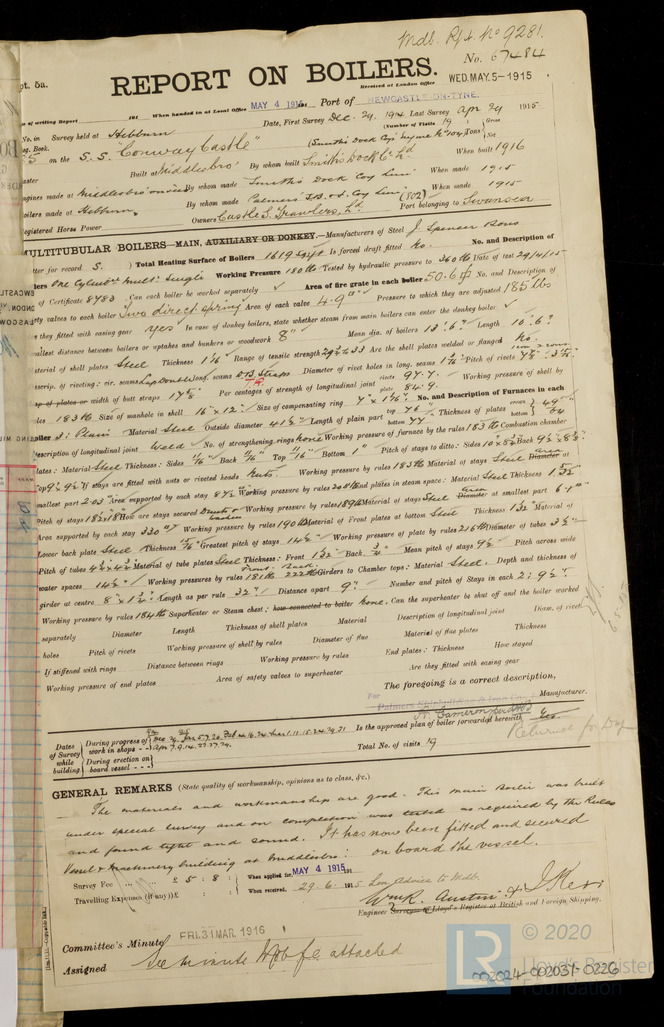 Mdb. Rpt No 9281.
pt. 5a.
REPORT ON BOILERS.
No. 67484
Received at London Office WED. MAY. 5-1915
of writing Report 191 When handed in at Local Office MAY 4 1915 Port of NEWCASTLE-ON-TYNE.
No. in Survey held at Hebburn Date, First Survey Dec. 29. 1914 Last Survey Apr 29 1915
eg. Book. (Number of Visits 19) Gross Tons Net
on the S.S. "Conway Castle" (Smiths Dock Coy's
aster Built at Middlesbro' By whom built Smith's Dock Co Ld When built 1916
ngines made at Middlesbro' By whom made Smith's Dock Coy Lim When made 1915
oilers made at Hebburn By whom made Palmers' S.B. & I. Coy Lim (802) When made 1915
egistered Horse Power Owners Castle S. Trawlers, Ld. Port belonging to Swansea
MULTITUBULAR BOILERS—MAIN, AUXILIARY OR DONKEY.—Manufacturers of Steel J. Spencer & Sons
tter for record S. ) Total Heating Surface of Boilers 1619 sq ft. Is forced draft fitted No. No. and Description of
lers One Cylindr mult. Single Working Pressure 180 lb Tested by hydraulic pressure to 360 lb Date of test 29/4/15
of Certificate 8783 Can each boiler be worked separately ✓ Area of fire grate in each boiler 50.6 No. and Description of
ety valves to each boiler Two direct spring Area of each valve 4.9 Pressure to which they are adjusted 185 lbs
they fitted with easing gear yes In case of donkey boilers, state whether steam from main boilers can enter the donkey boiler ✓
allest distance between boilers or uptakes and bunkers or woodwork 8" Mean dia. of boilers 13'.6" Length 10'.6"
aterial of shell plates Steel Thickness 1 1/16" Range of tensile strength 29½ to 33 Are the shell plates welded or flanged No.
escrip. of riveting: cir. seams Lap Double long. seams D.B. Straps T.R. Diameter of rivet holes in long. seams 1 1/16" Pitch of rivets
ap of plates or width of butt straps 17 5/8" Per centages of strength of longitudinal joint rivets 97.7. plate 84.9. Working pressure of shell by
ules 183 lb Size of manhole in shell 16" x 12" Size of compensating ring 7" x 1 1/16" No. and Description of Furnaces in each
oiler 3: Plain Material Steel Outside diameter 41½" Length of plain part top 76" bottom 77" Thickness of plates crown 49" bottom 64
escription of longitudinal joint Weld No. of strengthening rings None Working pressure of furnace by the rules 183 lb Combustion chamber
lates: Material Steel Thickness: Sides 11/16" Back 11/16" Top 11/16" Bottom 1" Pitch of stays to ditto: Sides 10" x 8½" Back 9½" x 8¾"
Top 9½" x 9½" If stays are fitted with nuts or riveted heads Nuts. Working pressure by rules 183 lb Material of stays Steel Area Diameter at
smallest part 2.03 Area supported by each stay 87½ Working pressure by rules 208 lb End plates in steam space: Material Steel Thickness 1 5/32"
Pitch of stays 18½ x 18" How are stays secured Working pressure by rules 189 lb Material of stays Steel Area Diameter at smallest part
Area supported by each stay 330 Working pressure by rules 190 lb Material of Front plates at bottom Steel Thickness 1 5/32" Material of
Lower back plate Steel Thickness 15/16" Greatest pitch of stays 14½" Working pressure of plate by rules 216 lb Diameter of tubes 3½"
Pitch of tubes 4½ x 4½" Material of tube plates Steel Thickness: Front 1 5/32" Back ¾" Mean pitch of stays 9½" Pitch across wide
water spaces 14½" Working pressures by rules Front 181 lb Back 222 lb Girders to Chamber tops: Material Steel. Depth and thickness of
girder at centre 8" x 1½" Length as per rule 32" Distance apart 9" Number and pitch of Stays in each 2: 9½".
Working pressure by rules 184 lb Superheater or Steam chest; how connected to boiler None. Can the superheater be shut off and the boiler worked
separately Diameter Length Thickness of shell plates Material Description of longitudinal joint Diam. of rivet
holes Pitch of rivets Working pressure of shell by rules Diameter of flue Material of flue plates Thickness
If stiffened with rings Distance between rings Working pressure by rules End plates: Thickness How stayed
Working pressure of end plates Area of safety valves to superheater Are they fitted with easing gear
The foregoing is a correct description,
For Palmers Shipbuilding & Iron Co.
Manufacturer.
Dates of Survey while building { During progress of work in shops - - } Is the approved plan of boiler forwarded herewith Yes
{ During erection on board vessel - - - } Total No. of visits 19
GENERAL REMARKS (State quality of workmanship, opinions as to class, &c.)
The materials and workmanships are good. This main Boiler was built
under special survey and on completion was tested as required by the Rules
and found tight and sound. It has now been fitted and secured
Vessel & machinery building at Middlesbro'. on board the vessel.
Survey Fee ... £ 5 : 8 : When applied for, MAY 4 1915 191
Travelling Expenses (if any) £ : : When received, 29.6.1915 Lon Advice to Mdb.
Wm R. Austin
Engineer Surveyor to Lloyd's Register of British and Foreign Shipping.
Committee's Minute FRI. 31 MAR. 1916
Assigned See minute attached
© 2020
LR Lloyd's Register Foundation
002024-002037-0226